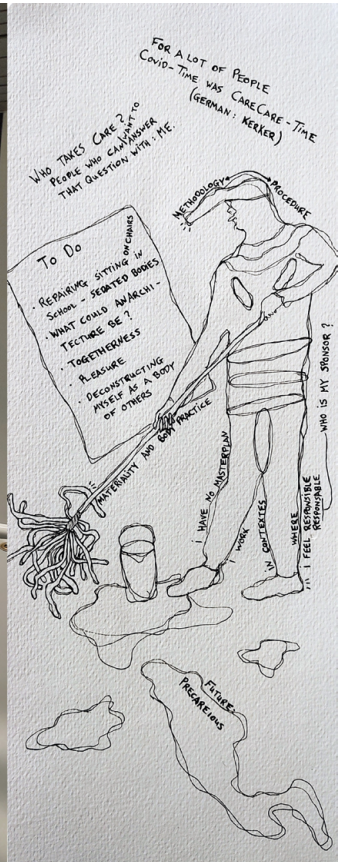 FOR A LOT OF PEOPLE
COVID-TIME WAS CARECARE-TIME
(GERMAN: KERKER)
WHO TAKES CARE?
PEOPLE WHO CAN/WANT TO ANSWER
THAT QUESTION WITH: ME.
METHODOLOGY PROCEDURE
TO DO
· REPAIRING SITTING ON CHAIRS IN
SCHOOL - SEDATED BODIES
· WHAT COULD ANARCHI-
TECTURE BE?
· TOGETHERNESS
· PLEASURE
· DECONSTRUCTING
MYSELF AS A BODY
OF OTHERS
MATERIALITY AND BODY PRACTICE
I HAVE NO MASTERPLAN
I WORK
IN CONTEXTES
WHERE
I FEEL RESPONSIBLE
RESPONSABLE
WHO IS MY SPONSOR?
FUTURE:
PRECAREIOUS